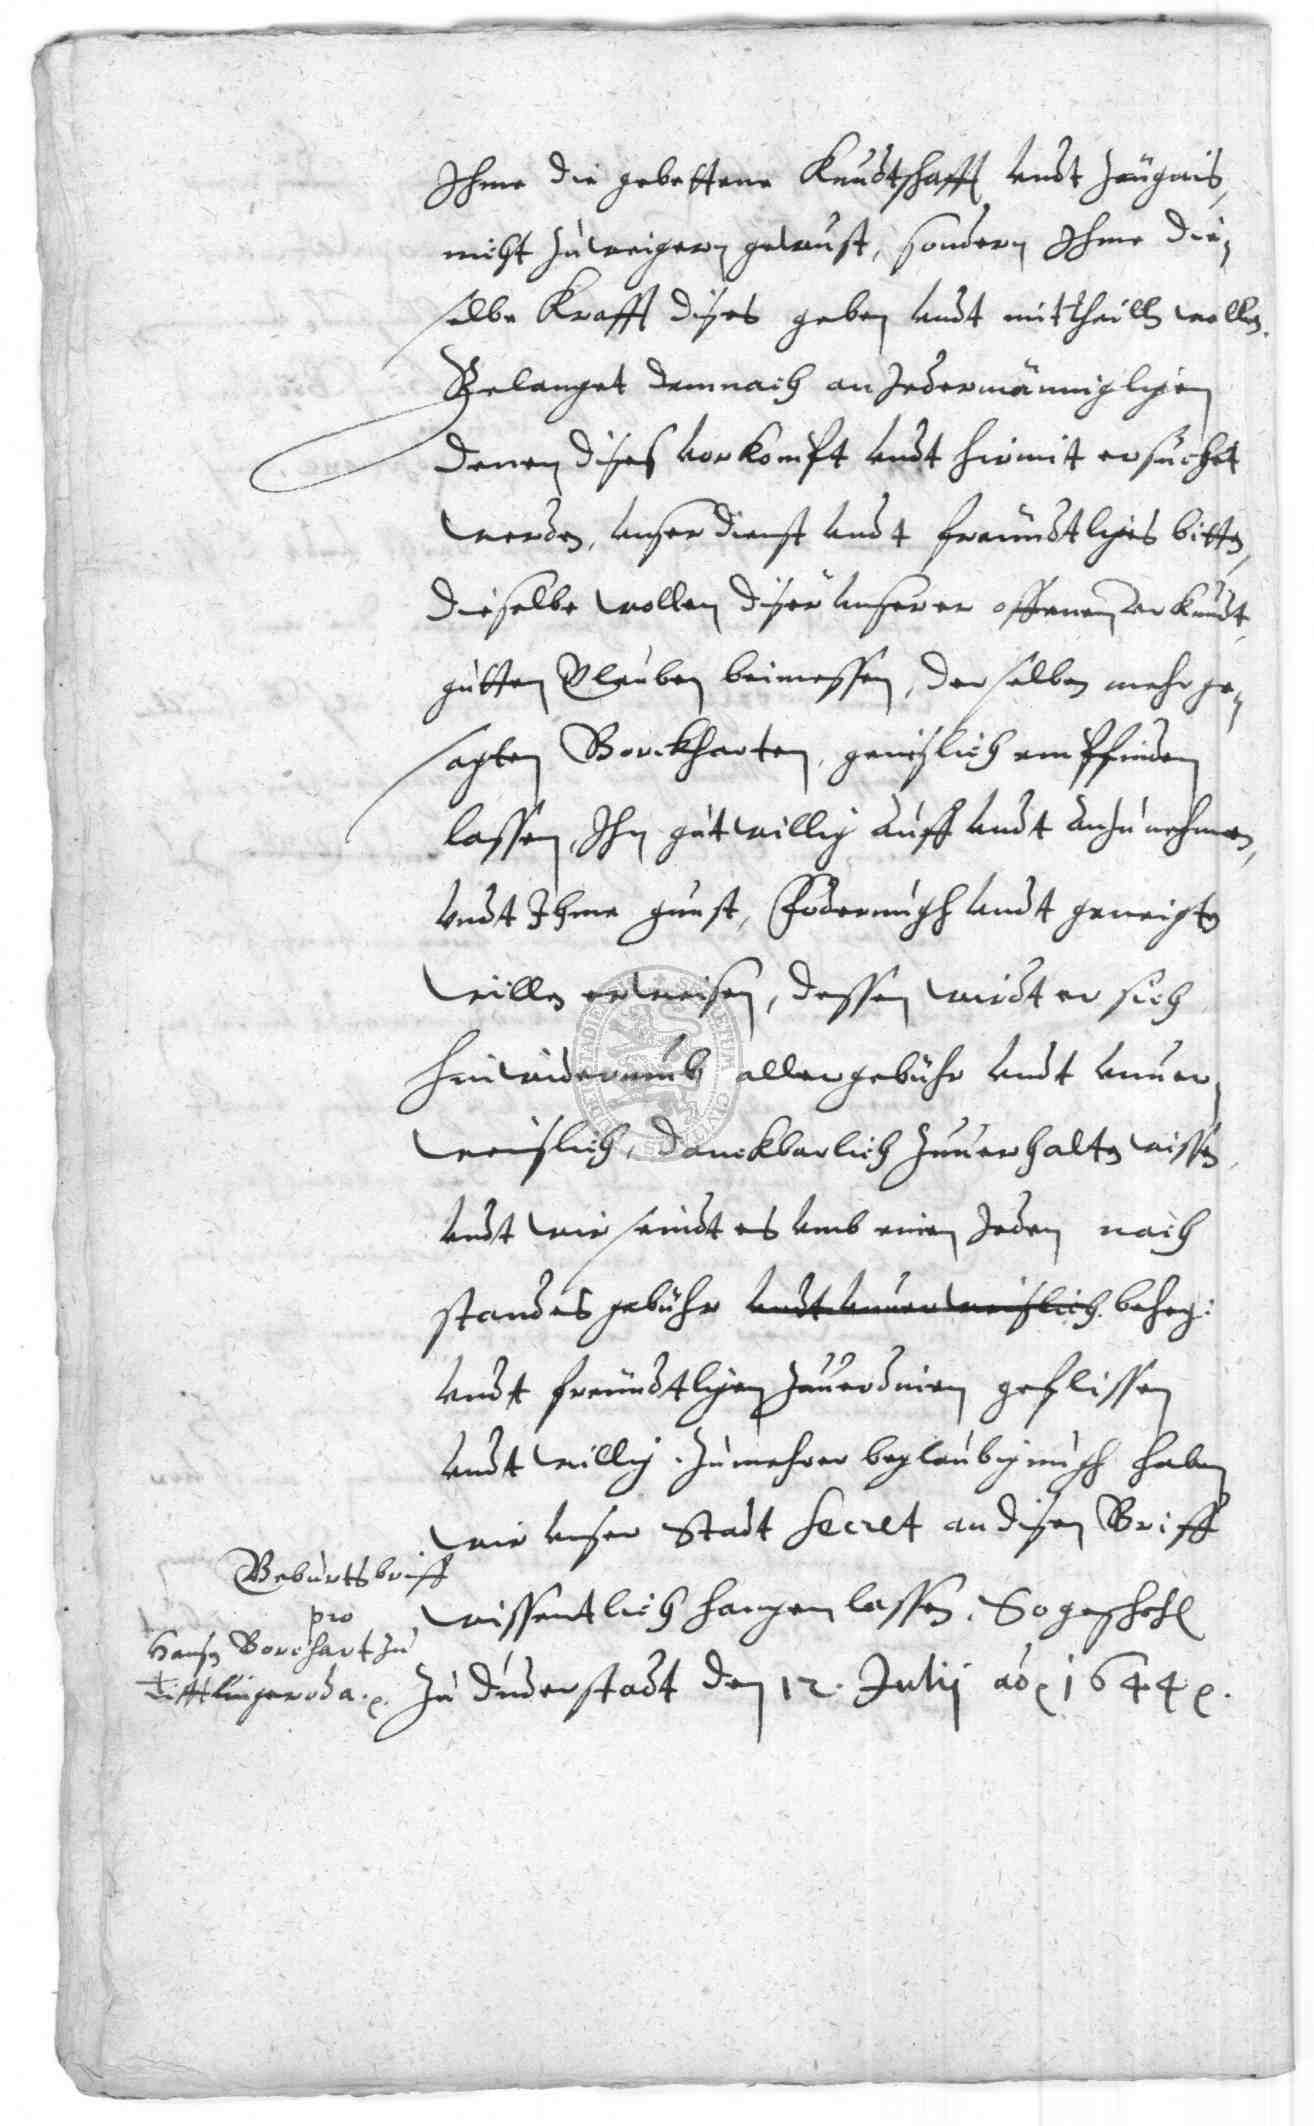 Ihme die gebettene Kundtschafft undt Zeügnis,
nicht zu weigern gewust, sondern Ihme die,
selbe Krafft dißes geben undt mittheilln wollen.
Gelanget demnach an Jedermänniglichen
denen dißes vorkompft undt hirmit ersüchet
werden, unser dienst undt freündtliches bitten,
dieselbe wollen dißer unserer offenen verkundt,
gutten Glauben beimessen, derselben mehr ge,
sagten Borckharten, genißlich empfinden
lassen, Ihn gutwillig auff undt anzunehmen,
undt Ihme gunst, Foderungh undt geneigten
willen erweisen, dessen wirdt er sich
hinwiderumb aller gebühr undt unver,
weißlich, danckbarlich zuuerhalten wissen,
undt wir seindt es umb einen Jeden nach
standes gebühr undt unverweißlich beheg:
undt freundtlichen zuuerdinen geflissen
undt willig. Zu mehrer beglaubigungh haben
wir unser Stadt Secret an disen Briff
wissentlich hangen lassen. So geschehen
Zu Duderstadt den 12. Julij ao 1644 p.
Geburtsbriff
pro
Hansen Borchart zu
Tifftlingeroda. p.